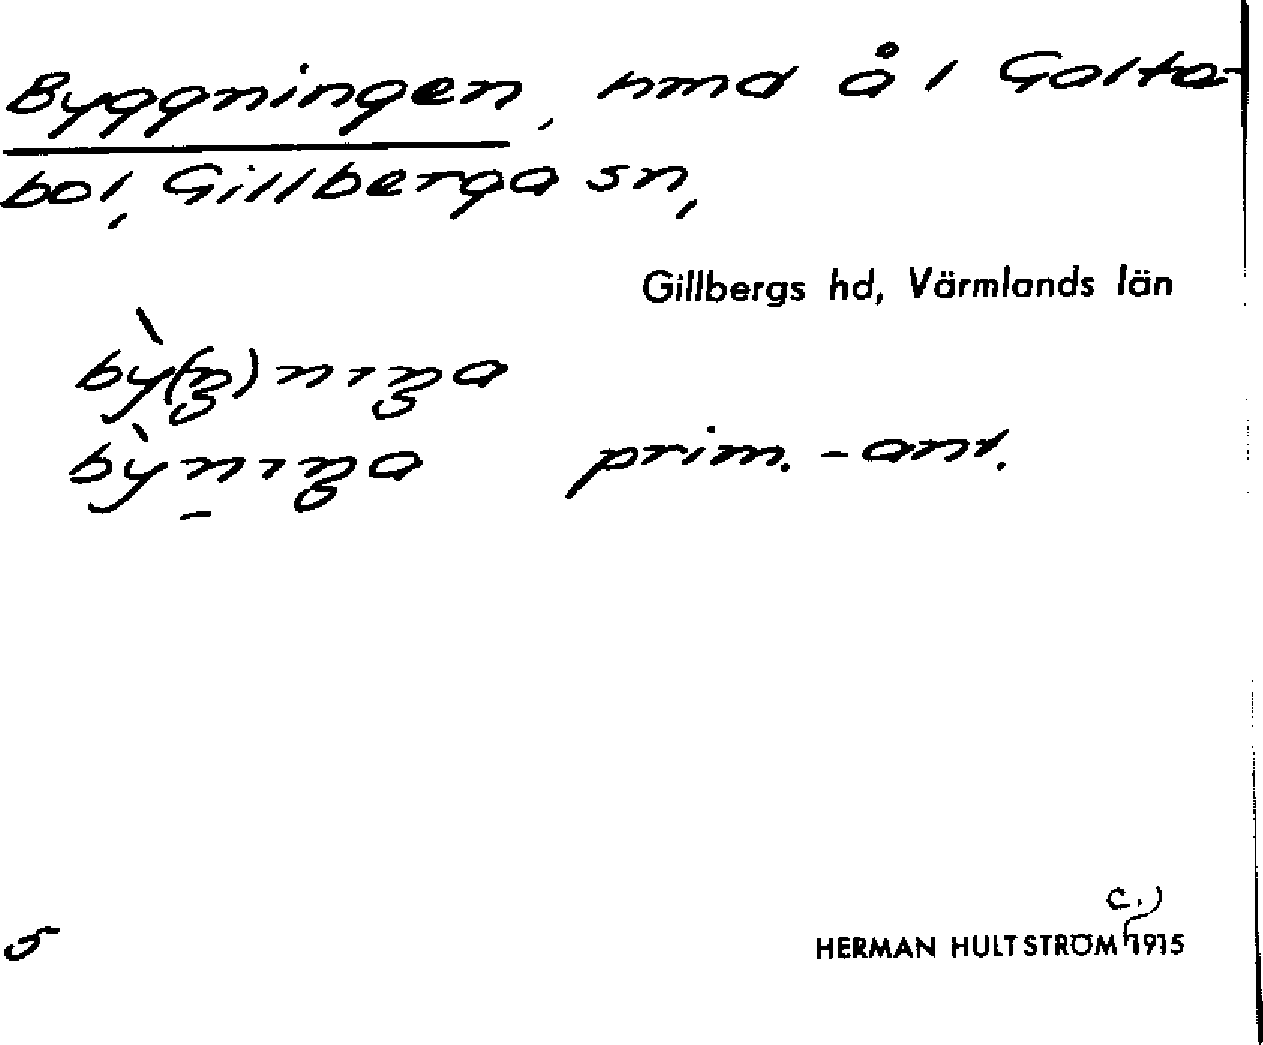 Byggningen, hmd å i Golta-
bol, Gillberga sn,
Gillbergs hd, Värmlands län
bỳ(ŋ)nıŋa
bỳnıŋa prim.-ant.
c.)
5 HERMAN HULTSTRÖM 1915